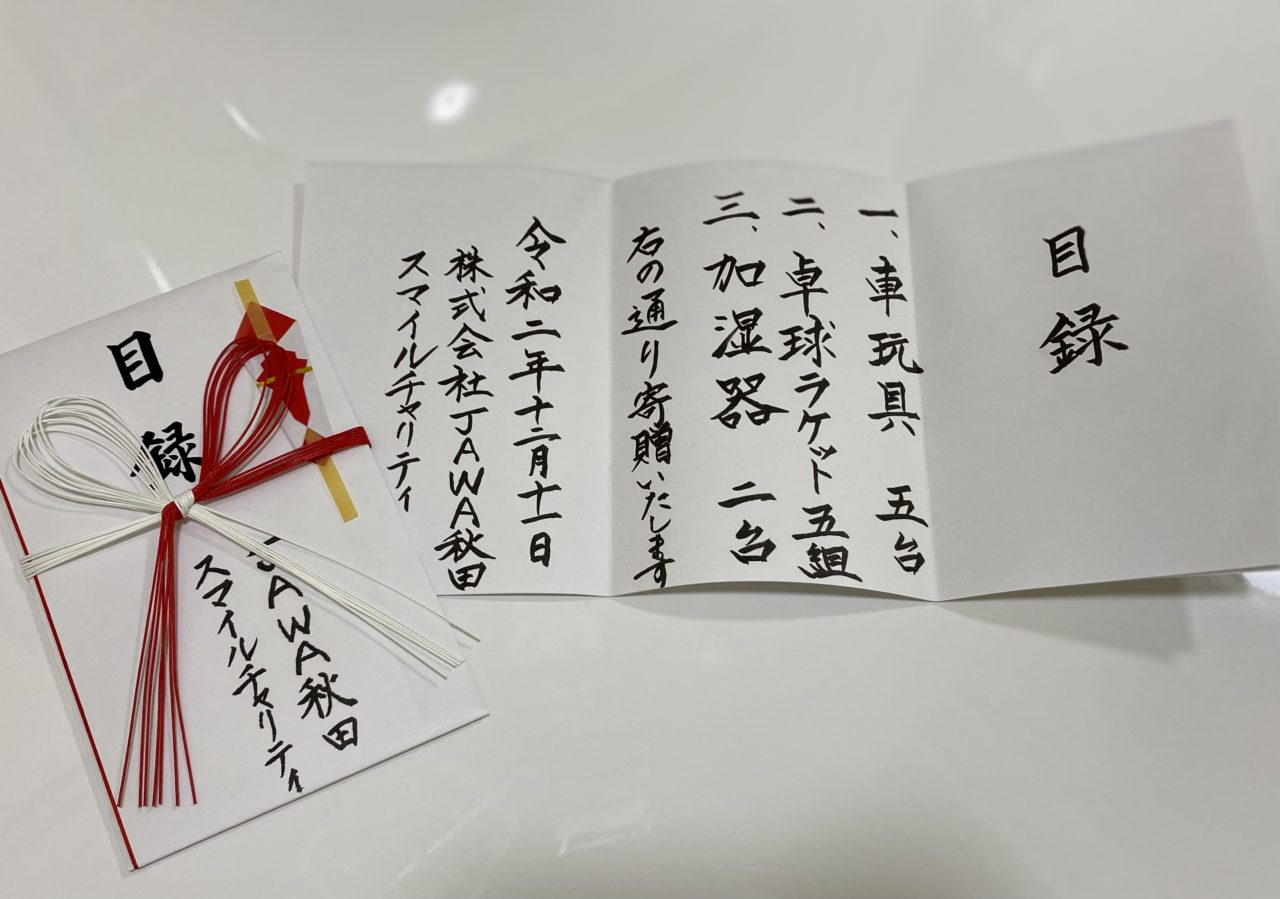 目録
一、車玩具 五台
二、卓球ラケット五組
三、加湿器 二台
右の通り寄贈いたします
令和二年十二月十一日
株式会社JAWA秋田
スマイルチャリティ
目録
JAWA秋田
スマイルチャリティ